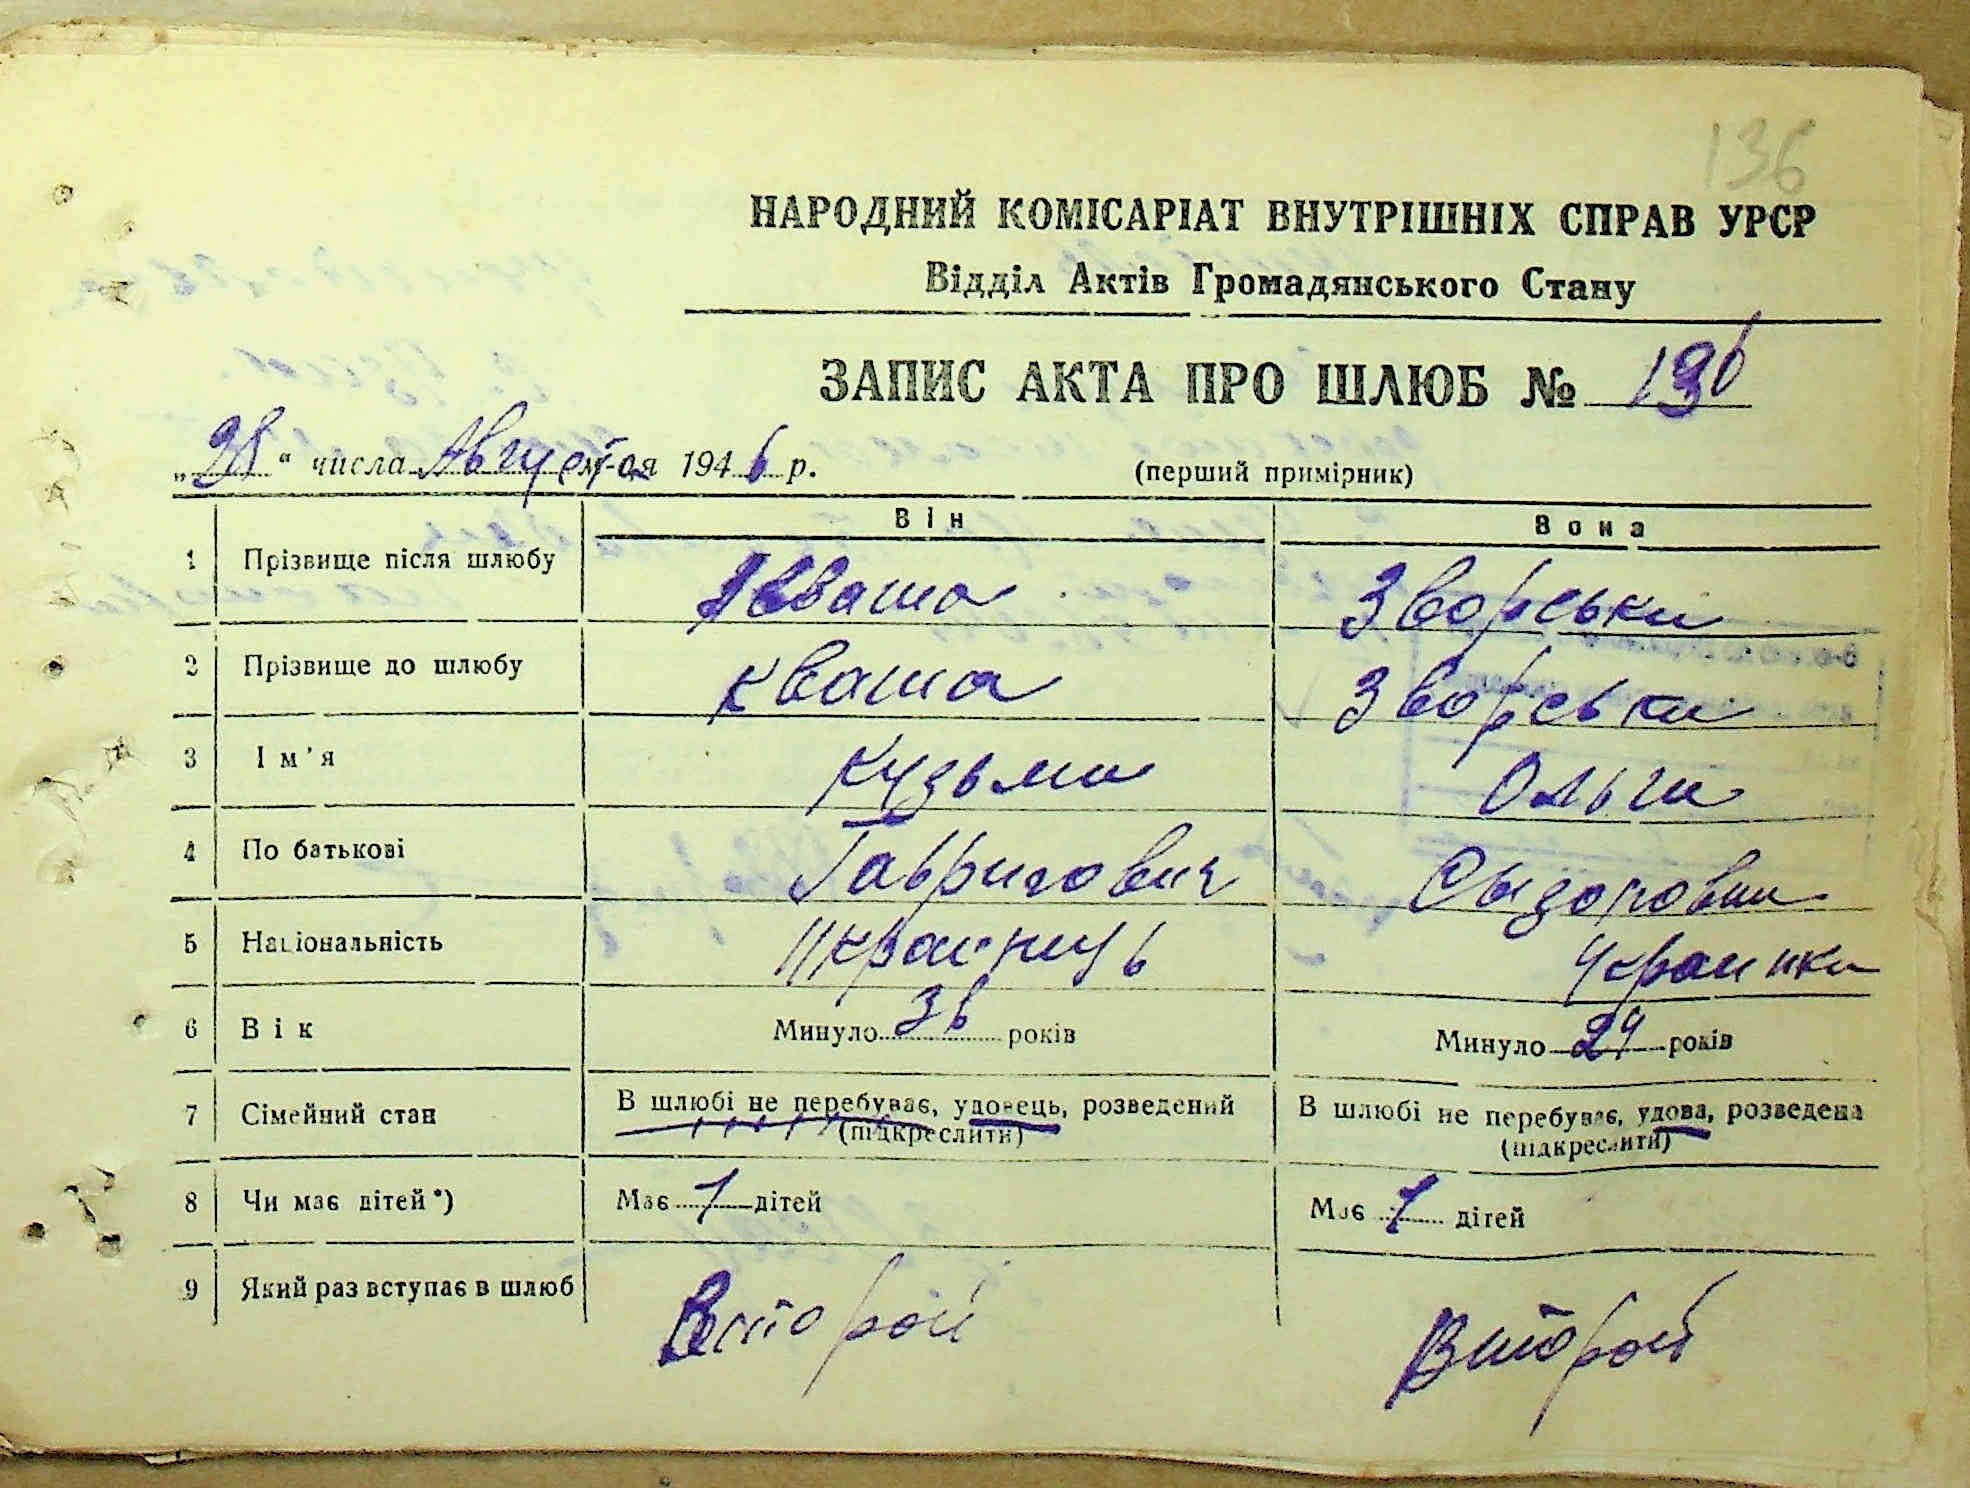 136
НАРОДНИЙ КОМІСАРІАТ ВНУТРІШНІХ СПРАВ УРСР
Відділ Актів Громадянського Стану
ЗАПИС АКТА ПРО ШЛЮБ № 136
„28“ числа Августа м-ця 1946 р. (перший примірник)
Він Вона
1 Прізвище після шлюбу Кваша Зворська
2 Прізвище до шлюбу Кваша Зворська
3 Ім'я Кузьма Ольга
4 По батькові Гаврилович Сыдоровна
5 Національність Украінець Украинка
6 Вік Минуло 36 років Минуло 24 років
7 Сімейний стан В шлюбі не перебуває, удовець, розведений В шлюбі не перебуває, удова, розведена
(підкреслити) (підкреслити)
8 Чи має дітей*) Має 1 дітей Має 1 дітей
9 Який раз вступає в шлюб Второй Второй